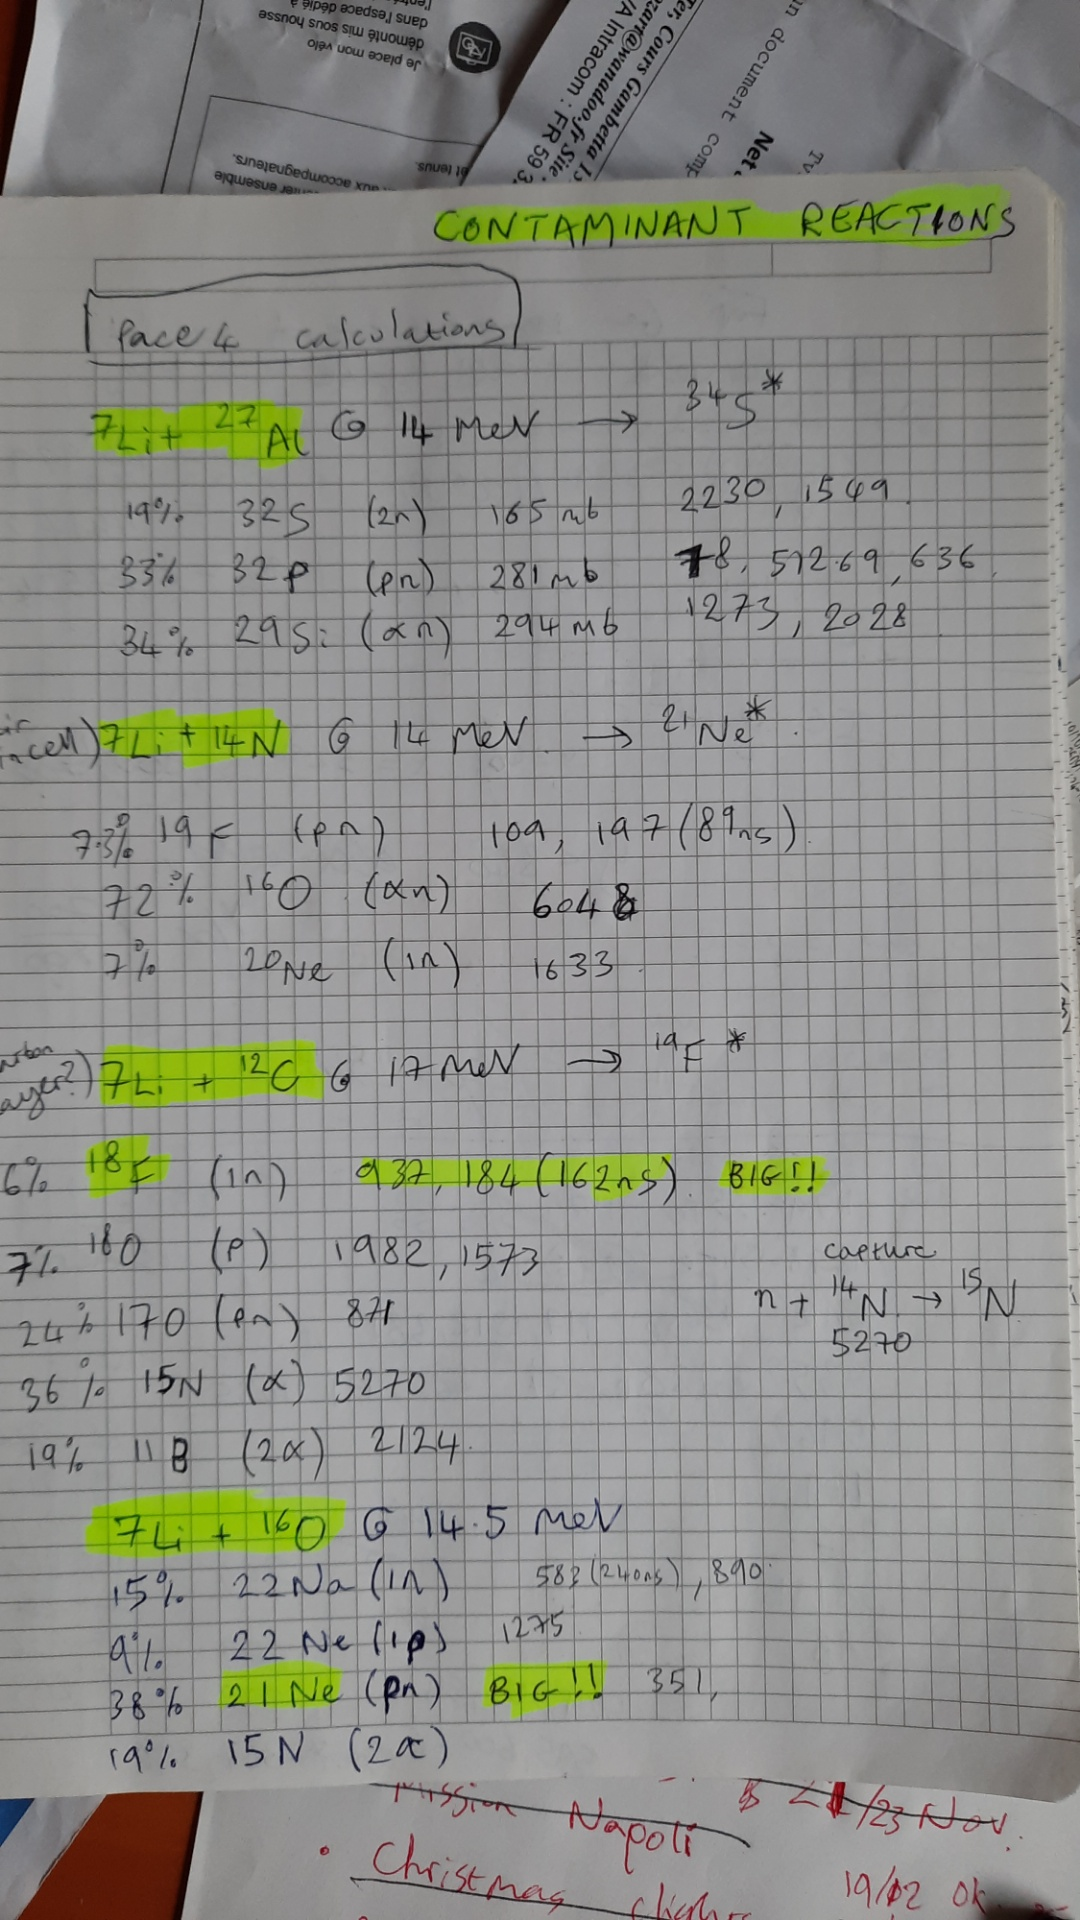 Je place mon vélo
démonté mis sous housse
dans l'espace dédié à
et tenus.
aux accompagnateurs.
ensemble
Cours Gambetta
@wanadoo.fr Site:
Intracom : FR 59 3
document
Net
CONTAMINANT REACTIONS
Pace 4 calculations
7Li + 27Al @ 14 MeV → 34S*
19% 32S (2n) 165 mb 2230, 1549.
33% 32P (pn) 281 mb 78, 512.69, 636,
34% 29Si (αn) 294 mb 1273, 2028
7Li + 14N @ 14 MeV. → 21Ne*.
7.3% 19F (pn) 109, 197 (89ns).
72% 16O (αn) 6048
7% 20Ne (1n) 1633
7Li + 12C @ 17 MeV → 19F *
6% 18F (1n) 937, 184 (162ns). BIG!!
7% 18O (p) 1982, 1573
capture
24% 17O (pn) 871
n + 14N → 15N
5270
36% 15N (α) 5270
19% 11B (2α) 2124.
7Li + 16O @ 14.5 MeV
15% 22Na (1n) 583 (240ns), 890.
9% 22Ne (1p) 1275
38% 21Ne (pn) BIG!! 351,
19% 15N (2α)
Mission Napoli /23 Nov.
• Christmas 19/12 Ok